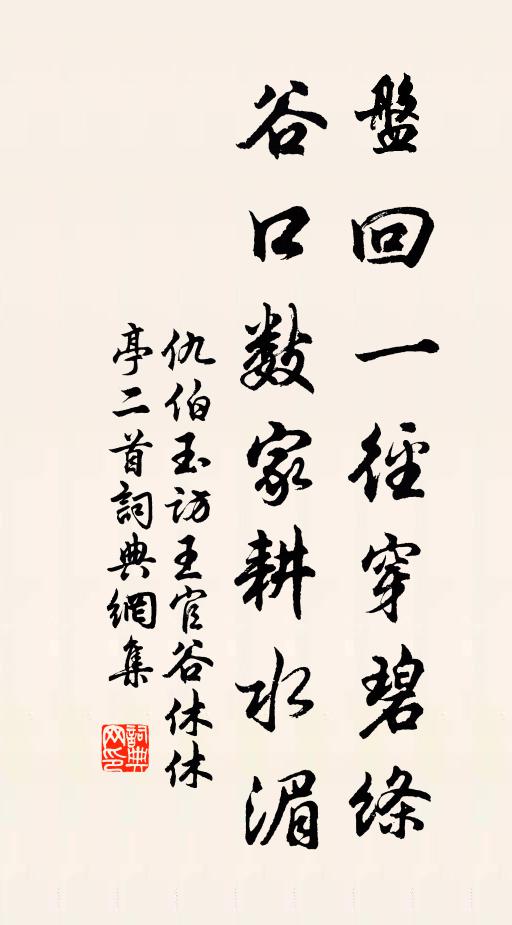 盤回一徑穿碧絛
谷口數家耕水湄
仇伯玉訪王官谷休休
亭二首詞典網集
詞典網印